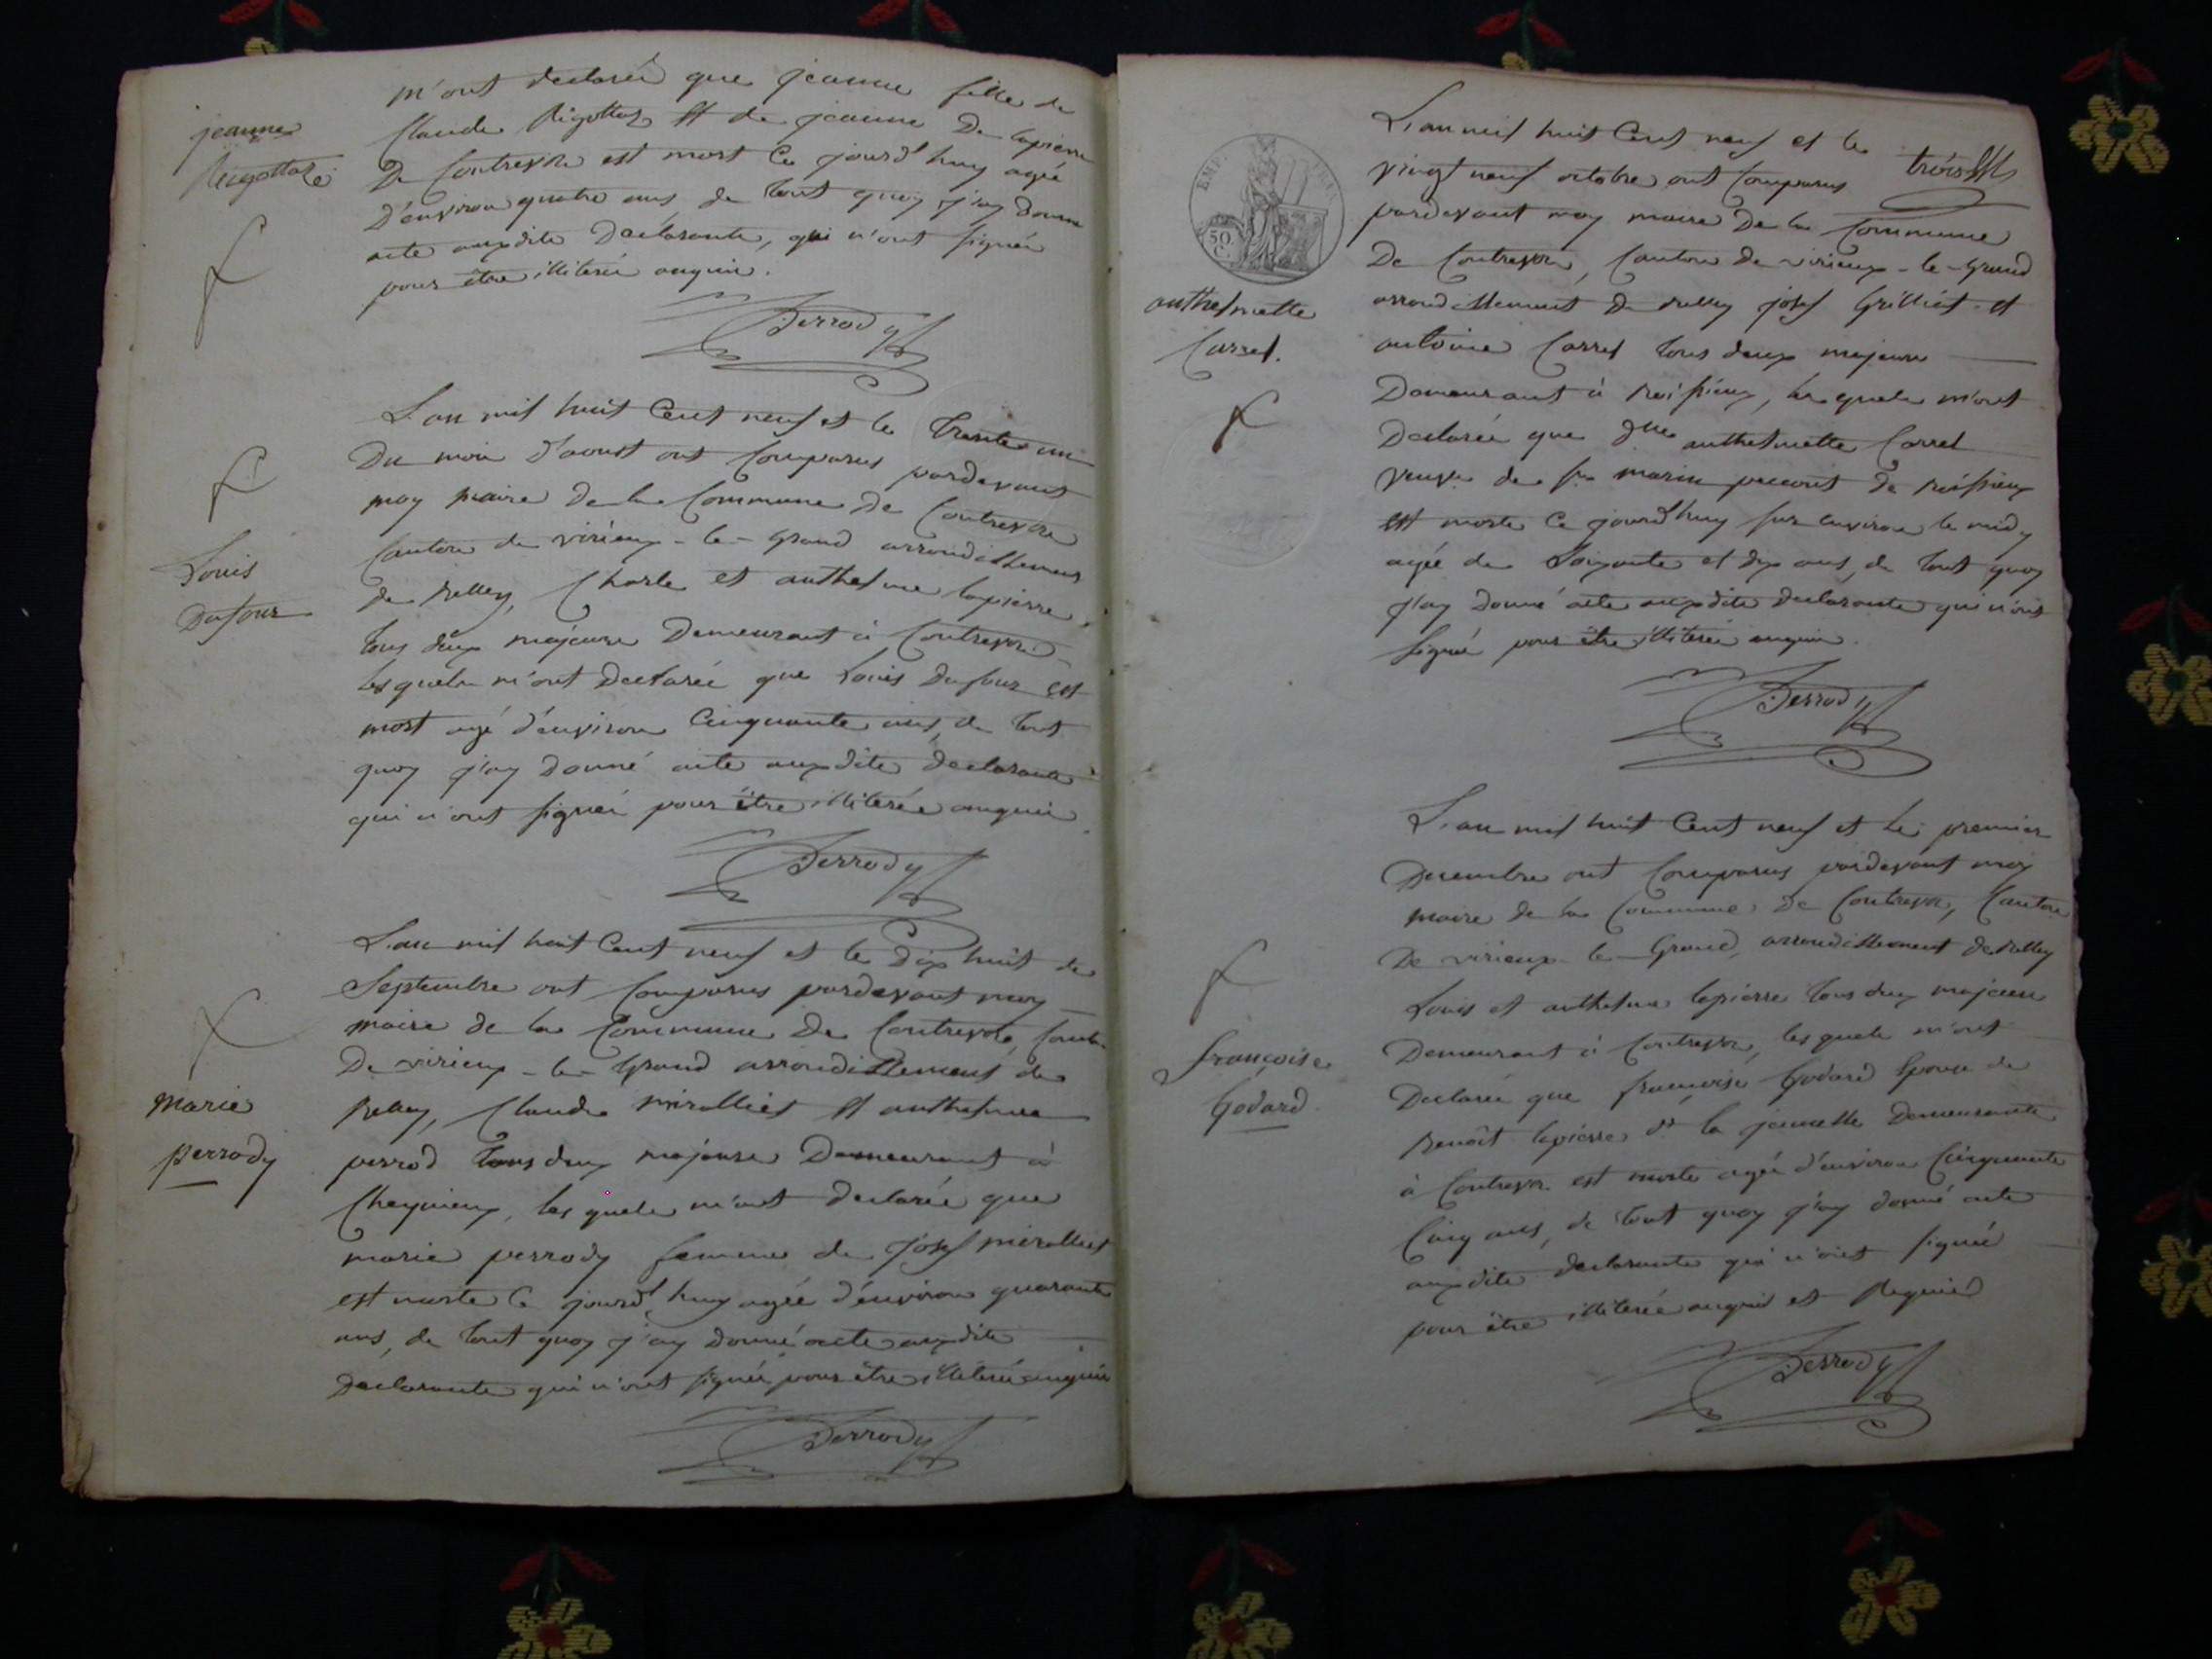 m'ont declarée que jeanne fille de
Claude Rigottaz et de jeanne De lapierre
De Contrevoz est mort Ce jourd'huy agée
D'environ quatre ans, de tout quoy j'ay donné
acte auxdits Declarants, qui n'ont signée
pour être illiterée enquis.
jeanne
Rigottaz
Perrody
L'an mil huit Cent neuf et le trente un
Du mois d'aoust ont Comparus pardevant
moy maire de la Commune de Contrevoz
Canton de virieux-le-grand arrondissement
de Belley, Charle et anthelme lapierre
tous deux majeurs Demeurant à Contrevoz
lesquels m'ont Declarée que Louis Dufour est
mort agé d'environ Cinquante ans, de tout
quoy j'ay Donné acte auxdits declarants
qui n'ont signée pour être illiterée enquis
Louis
Dufour
Perrody
L'an mil huit Cent neuf et le Dix huit de
Septembre ont Comparus pardevant moy
maire de la Commune De Contrevoz,
De virieux-le-Grand arrondissement de
Belley, Claude miralliet et anthelme
perrod tous deux majeurs Demeurant à
Cheynieux, lesquels m'ont declarée que
marie perrody femme de josef miralliet
est morte Ce jourd'huy agée d'environ quarante
ans, de tout quoy j'ay donné acte auxdits
declarants qui n'ont signée pour être illiterée enquis
Marie
perrody
Perrody
trois
EMP. FRAN.
50 C.
L'an mil huit Cent neuf et le
vingt neuf octobre ont Comparus
pardevant moy maire De la Commune
De Contrevoz, Canton de virieux-le-Grand
arrondissement De Belley josef Grilliet et
antoine Carrel tous deux majeurs
Demeurant à Boissieux, lesquels m'ont
Declarée que anthelmette Carrel
veuve de marin de Boissieux
est morte Ce jourd'huy sur environ le midy
agée de Soixante et dix ans, de tout quoy
j'ay Donné acte auxdits declarants qui n'ont
signée pour être illiterée enquis.
anthelmette
Carrel.
Perrody
L'an mil huit Cent neuf et le premier
Decembre ont Comparus pardevant moy
maire de la Commune De Contrevoz, Canton
De virieux-le-Grand, arrondissement de Belley
Louis et anthelme lapierre tous deux majeurs
Demeurant à Contrevoz, lesquels m'ont
Declarée que francoise Godard Epouse de
Benoît lapierre dt la jeunesse Demeurante
à Contrevoz est morte agée d'environ Cinquante
Cinq ans, de tout quoy j'ay donné acte
auxdits declarants qui n'ont signée
pour être illiterée enquis et Requis
françoise
Godard
Perrody